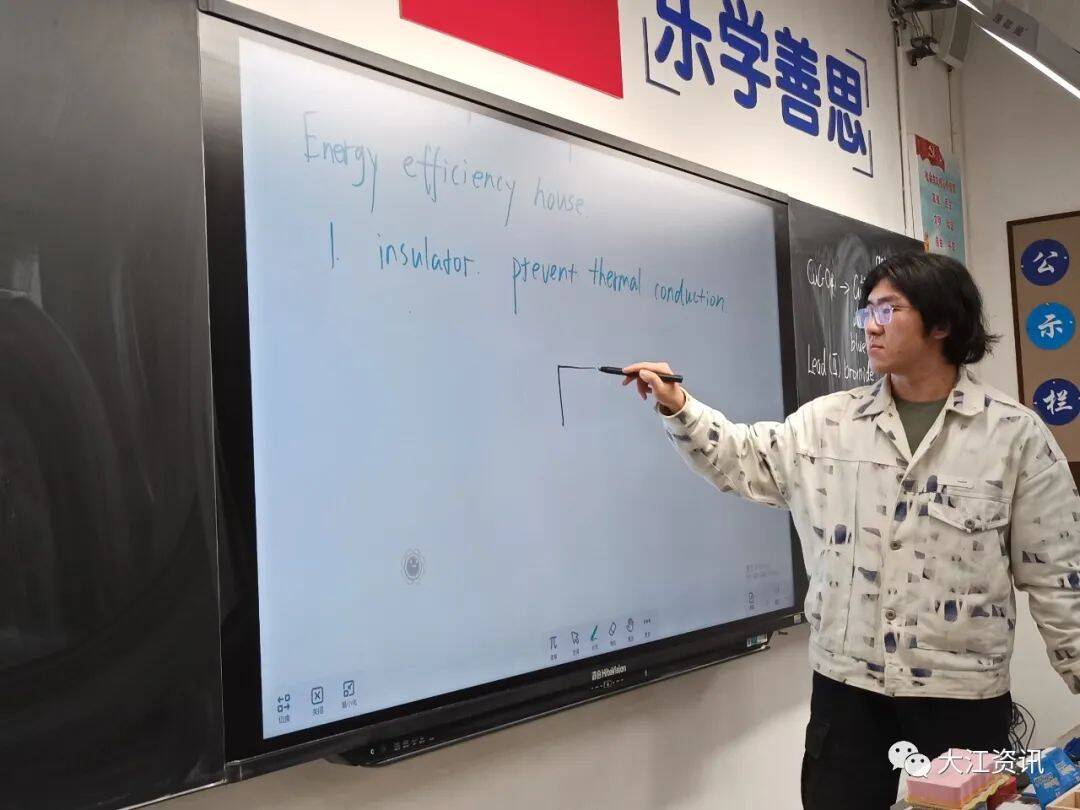 乐学善思
Energy efficiency house.
1. insulator. prevent thermal conduction
CuCO3 →
blue
Lead (II) bromide
公
示
栏
切换
关闭
最小化
HiteVision
大江资讯